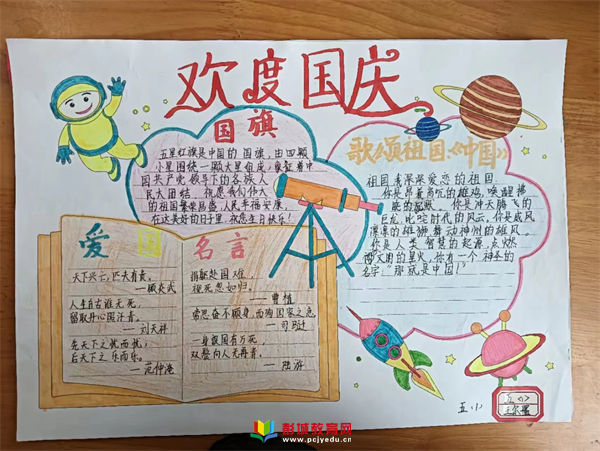 欢度国庆
国旗
五星红旗是中国的国旗,由四颗
小星围绕一颗大星组成,象征着中
国共产党领导下的各族人
民大团结,祝愿我们伟大
的祖国繁荣昌盛人民幸福安康,
在这美好的日子里,祝您生日快乐!
歌颂祖国《中国》
祖国我深深爱恋的祖国.
你是昂首高吭的雄鸡,唤醒拂
晓的沉默,你是冲天腾飞的
巨龙,叱咤时代的风云,你是威风
凛凛的雄狮舞动神州的雄风.
你是人类智慧的起源,点燃
文明的星火,你有一个神圣的
名字,那就是中国!
爱国名言
天下兴亡,匹夫有责.
——顾炎武
人生自古谁无死,
留取丹心照汗青.
——文天祥
先天下之忧而忧,
后天下之乐而乐.
——范仲淹
捐躯赴国难,
视死忽如归.
——曹植
常思奋不顾身,而殉国家之急
——司马迁
一身报国有万死,
双鬓向人无再青.
——陆游
五(1)
五<1>
彭城教育网
www.pcjyedu.cn